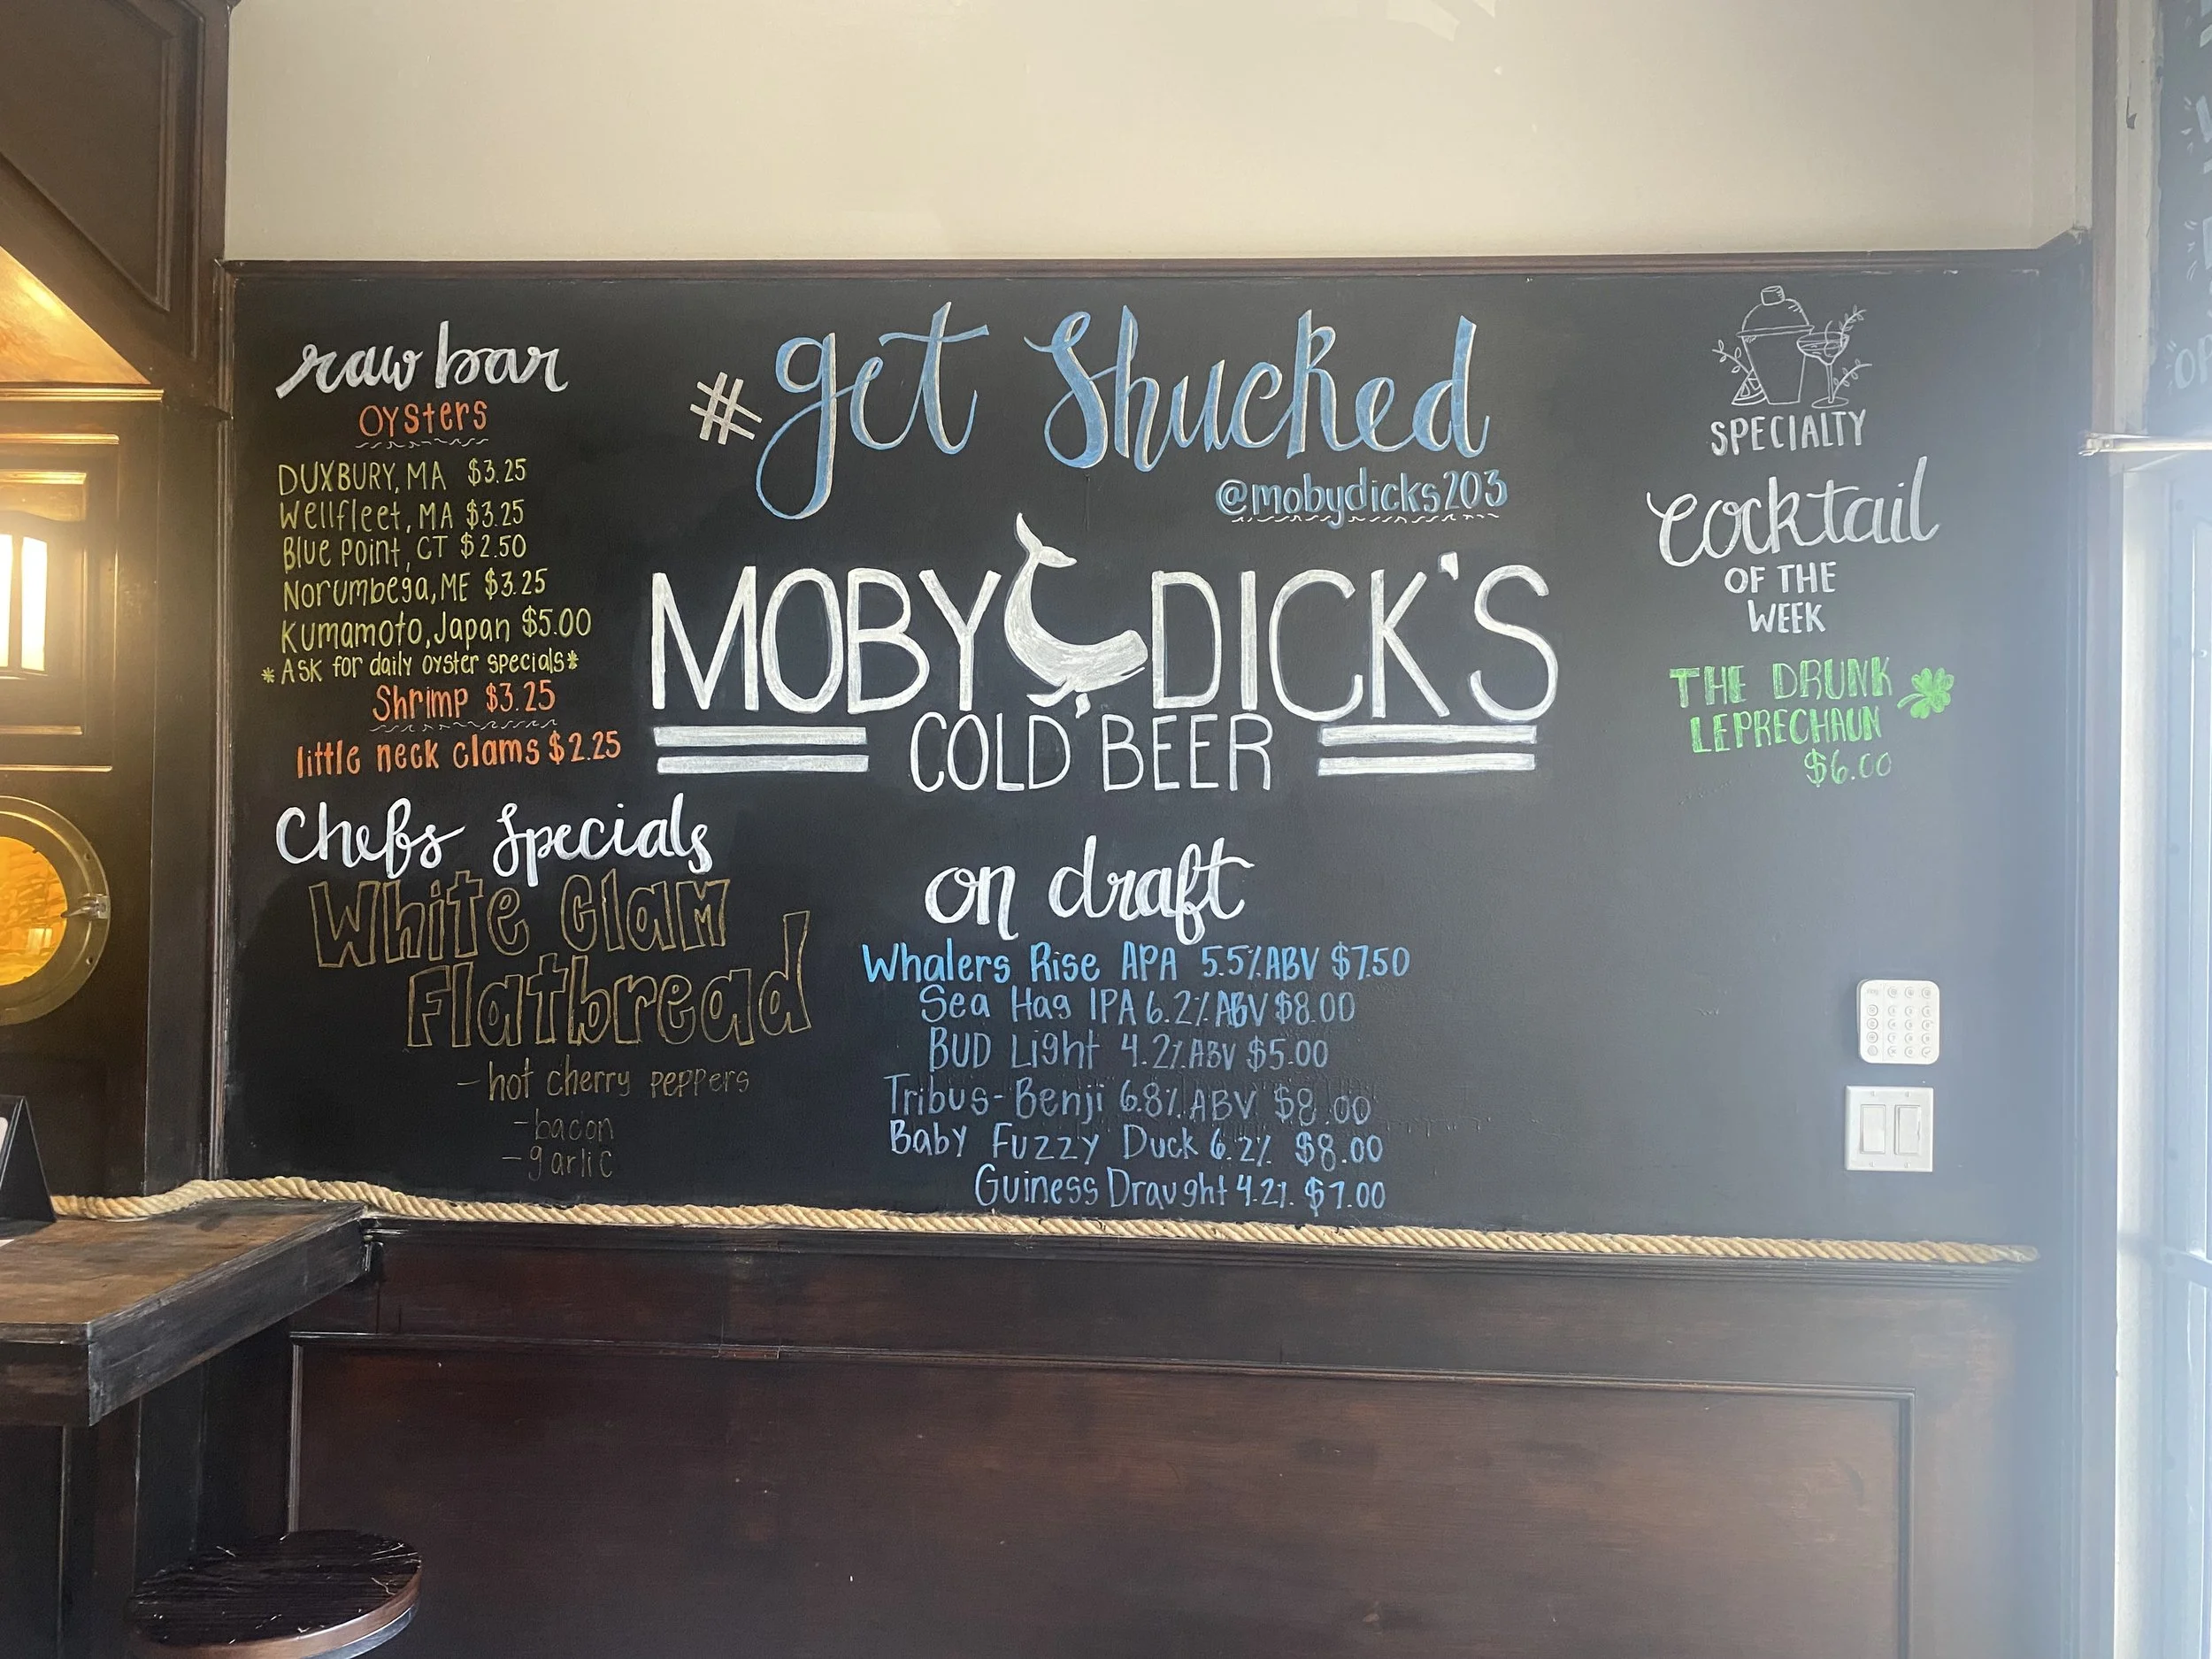 raw bar
Oysters
DUXBURY, MA $3.25
Wellfleet, MA $3.25
Blue Point, CT $2.50
Norumbega, ME $3.25
Kumamoto, Japan $5.00
*ASK for daily oyster specials*
Shrimp $3.25
little neck clams $2.25
Chefs Specials
White Clam
Flatbread
- hot cherry peppers
- bacon
- garlic
#get Shucked
@mobydicks203
MOBY DICK'S
COLD BEER
on draft
Whalers Rise APA 5.5% ABV $7.50
Sea Hag IPA 6.2% ABV $8.00
BUD Light 4.2% ABV $5.00
Tribus-Benji 6.8% ABV $8.00
Baby Fuzzy Duck 6.2% $8.00
Guiness Draught 4.2% $7.00
SPECIALTY
Cocktail
OF THE
WEEK
THE DRUNK
LEPRECHAUN
$6.00